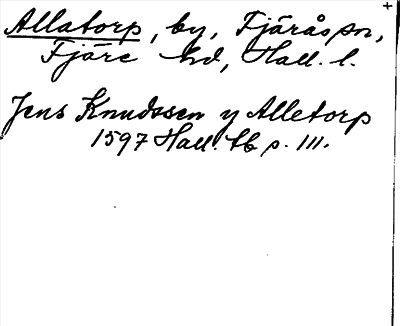 Allatorp, by, Fjärås sn,
Fjäre hd, Hall. l.
Jens Knudssen y Alletorp
1597 Hall. tb p. 111.